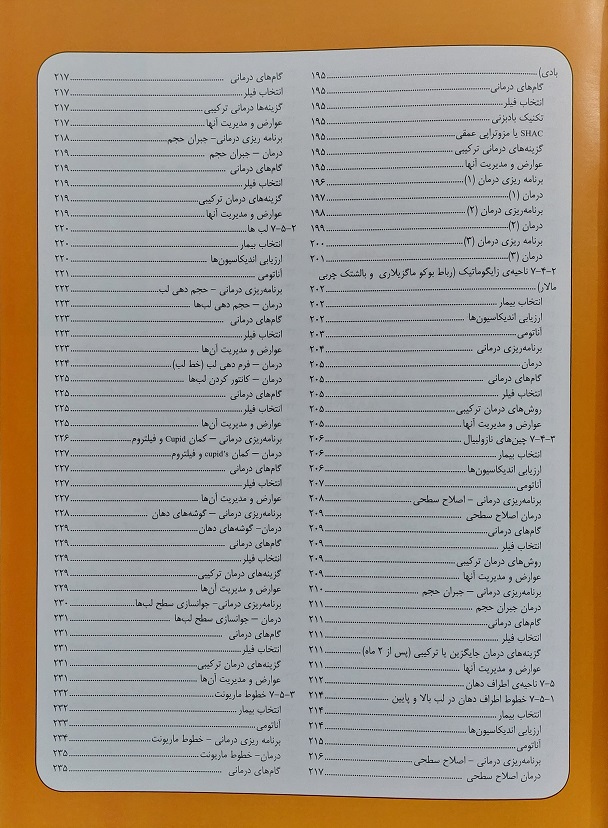 بادی)..................۱۹۵
گام‌های درمانی..................۱۹۵
انتخاب فیلر..................۱۹۵
تکنیک بادبزنی..................۱۹۵
SHAC یا مزوتراپی عمقی..................۱۹۵
گزینه‌های درمانی ترکیبی..................۱۹۵
عوارض و مدیریت آنها..................۱۹۵
برنامه ریزی درمان (۱)..................۱۹۶
درمان (۱)..................۱۹۷
برنامه‌ریزی درمان (۲)..................۱۹۸
درمان (۲)..................۱۹۹
برنامه ریزی درمان (۳)..................۲۰۰
درمان (۳)..................۲۰۱
۷-۴-۲ ناحیه‌ی زایگوماتیک (رباط بوکو ماگزیلاری و بالشتک چربی
مالار)..................۲۰۲
انتخاب بیمار..................۲۰۲
ارزیابی اندیکاسیون‌ها..................۲۰۲
آناتومی..................۲۰۳
برنامه‌ریزی درمانی..................۲۰۴
درمان..................۲۰۵
گام‌های درمانی..................۲۰۵
انتخاب فیلر..................۲۰۵
روش‌های درمان ترکیبی..................۲۰۵
عوارض و مدیریت آنها..................۲۰۵
۷-۴-۳ چین‌های نازولبیال..................۲۰۶
انتخاب بیمار..................۲۰۶
ارزیابی اندیکاسیون‌ها..................۲۰۶
آناتومی..................۲۰۷
برنامه‌ریزی درمانی – اصلاح سطحی..................۲۰۸
درمان اصلاح سطحی..................۲۰۹
گام‌های درمانی..................۲۰۹
انتخاب فیلر..................۲۰۹
روش‌های درمان ترکیبی..................۲۰۹
عوارض و مدیریت آنها..................۲۰۹
برنامه‌ریزی درمانی – جبران حجم..................۲۱۰
درمان جبران حجم..................۲۱۱
گام‌های درمانی..................۲۱۱
انتخاب فیلر..................۲۱۱
گزینه‌های درمان جایگزین یا ترکیبی (پس از ۲ ماه)..................۲۱۱
عوارض و مدیریت آنها..................۲۱۱
۷-۵ ناحیه‌ی اطراف دهان..................۲۱۲
۷-۵-۱ خطوط اطراف دهان در لب بالا و پایین..................۲۱۴
انتخاب بیمار..................۲۱۴
ارزیابی اندیکاسیون‌ها..................۲۱۴
آناتومی..................۲۱۵
برنامه‌ریزی درمانی – اصلاح سطحی..................۲۱۶
درمان اصلاح سطحی..................۲۱۷
گام‌های درمانی..................۲۱۷
انتخاب فیلر..................۲۱۷
گزینه‌ها درمانی ترکیبی..................۲۱۷
عوارض و مدیریت آنها..................۲۱۷
برنامه ریزی درمانی– جبران حجم..................۲۱۸
درمان – جبران حجم..................۲۱۹
گام‌های درمانی..................۲۱۹
انتخاب فیلر..................۲۱۹
گزینه‌های درمان ترکیبی..................۲۱۹
عوارض و مدیریت آنها..................۲۱۹
۷-۵-۲ لب ها..................۲۲۰
انتخاب بیمار..................۲۲۰
ارزیابی اندیکاسیون‌ها..................۲۲۰
آناتومی..................۲۲۱
برنامه‌ریزی درمانی – حجم دهی لب..................۲۲۲
درمان – حجم دهی لب‌ها..................۲۲۳
گام‌های درمانی..................۲۲۳
انتخاب فیلر..................۲۲۳
عوارض و مدیریت آن‌ها..................۲۲۳
درمان – فرم دهی لب (خط لب)..................۲۲۴
درمان – کانتور کردن لب‌ها..................۲۲۵
گام‌های درمانی..................۲۲۵
انتخاب فیلر..................۲۲۵
عوارض و مدیریت آن‌ها..................۲۲۵
برنامه‌ریزی درمانی – کمان Cupid و فیلتروم..................۲۲۶
درمان – کمان cupid's و فیلتروم..................۲۲۷
گام‌های درمانی..................۲۲۷
انتخاب فیلر..................۲۲۷
عوارض و مدیریت آن‌ها..................۲۲۷
برنامه‌ریزی درمانی – گوشه‌های دهان..................۲۲۸
درمان– گوشه‌های دهان..................۲۲۹
گام‌های درمانی..................۲۲۹
انتخاب فیلر..................۲۲۹
گزینه‌های درمان ترکیبی..................۲۲۹
عوارض و مدیریت آن‌ها..................۲۲۹
برنامه‌ریزی درمانی– جوانسازی سطح لب‌ها..................۲۳۰
درمان – جوانسازی سطح لب‌ها..................۲۳۱
گام‌های درمانی..................۲۳۱
انتخاب فیلر..................۲۳۱
گزینه‌های درمان ترکیبی..................۲۳۱
عوارض و مدیریت آن‌ها..................۲۳۱
۷-۵-۳ خطوط ماریونت..................۲۳۲
انتخاب بیمار..................۲۳۲
آناتومی..................۲۳۳
برنامه ریزی درمانی – خطوط ماریونت..................۲۳۴
درمان– خطوط ماریونت..................۲۳۵
گام‌های درمانی..................۲۳۵